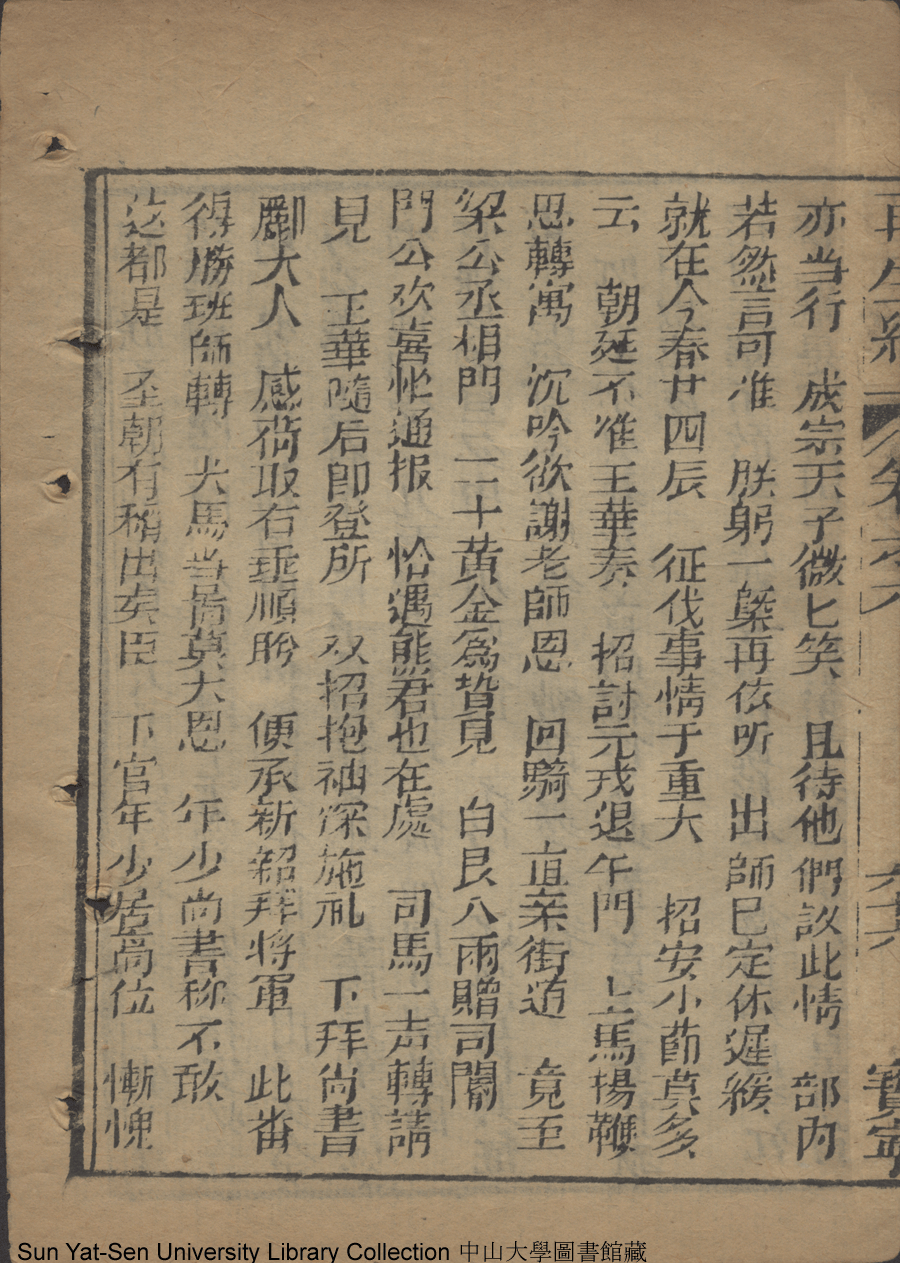 再生緣 卷之六 六十六 寶寧
亦当行 成宗天子微匕笑 且待他們议此情 部内
若然言可准 朕躬一槩再依听 出師已定休遲緩
就在今春廿四辰 征伐事情于重大 招安小莭莫多
云 朝廷不准王華奏 招討元戎退午門 上馬揚鞭
思轉寓 沉吟欲謝老師恩 回騎一直来街道 竟至
梁公丞相門 二十黄金爲贄見 白艮八兩贈司閽
門公欢喜忙通报 恰遇熊君也在處 司馬一声轉請
見 王華隨后即登所 双招抱袖深施礼 下拜尚書
酈大人 感荷取右垂順盻 便承新詔拜将軍 此番
得勝班師轉 犬馬当啣莫大恩 年少尚書称不敢
这都是 圣朝有福出矣臣 下官年少居尚位 慚愧
Sun Yat-Sen University Library Collection 中山大學圖書館藏